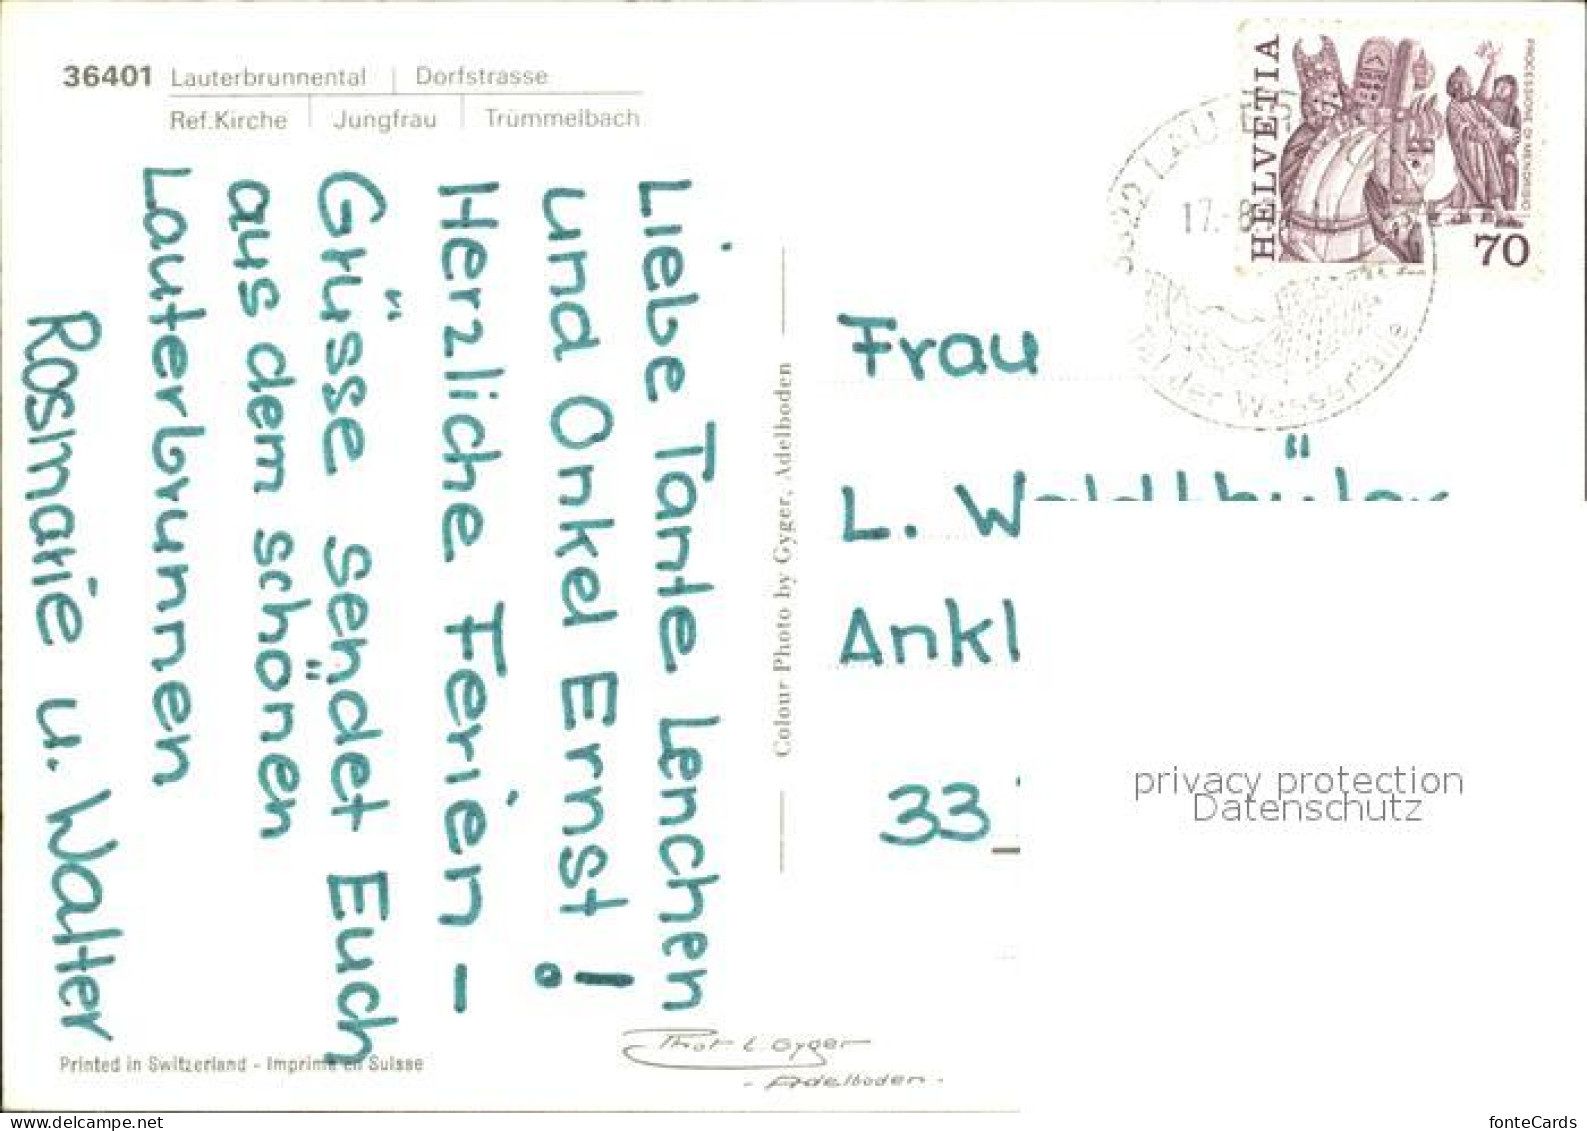 36401 Lauterbrunnental | Dorfstrasse
Ref.Kirche | Jungfrau | Trümmelbach
Liebe Tante Lenchen
und Onkel Ernst!
Herzliche Ferien-
Grüsse sendet Euch
aus dem schönen
Lauterbrunnen
Rosmarie u. Walter
Printed in Switzerland - Imprimé en Suisse
Colour Photo by Gyger, Adelboden
Phot. L. Gyger
- Adelboden -
HELVETIA
PROCESSIONE DI MENDRISIO
70
3822 LAU
17.-8
der Wasserfälle
Frau
L.
Ankl
33
privacy protection
Datenschutz
www.delcampe.net
fonteCards